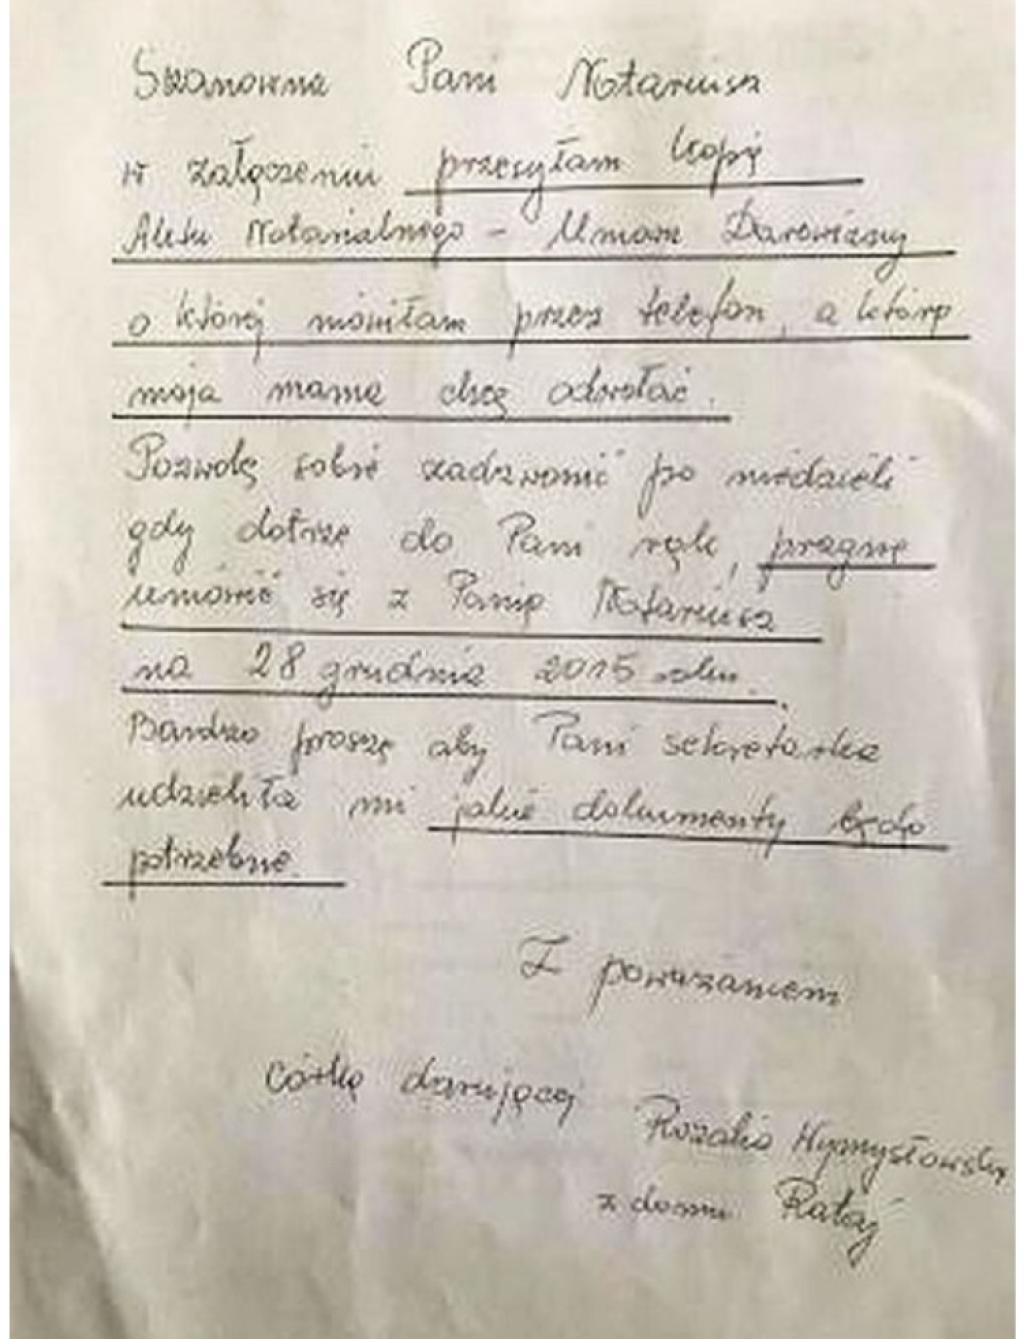 Szanowna Pani Notariusz
w załączeniu przesyłam kopię
Aktu Notarialnego - Umowa Darowizny
o której mówiłam przez telefon, a którą
moja mama chcę odwołać.
Pozwolę sobie zadzwonić po niedzieli
gdy dotrze do Pani rąk, pragnę
umówić się z Panią Notariusz
na 28 grudnia 2015 roku.
Bardzo proszę aby Pani sekretarka
udzieliła mi jakie dokumenty będą
potrzebne.
Z poważaniem
córka darującej Rozalia Wymysłowska
z domu Rataj